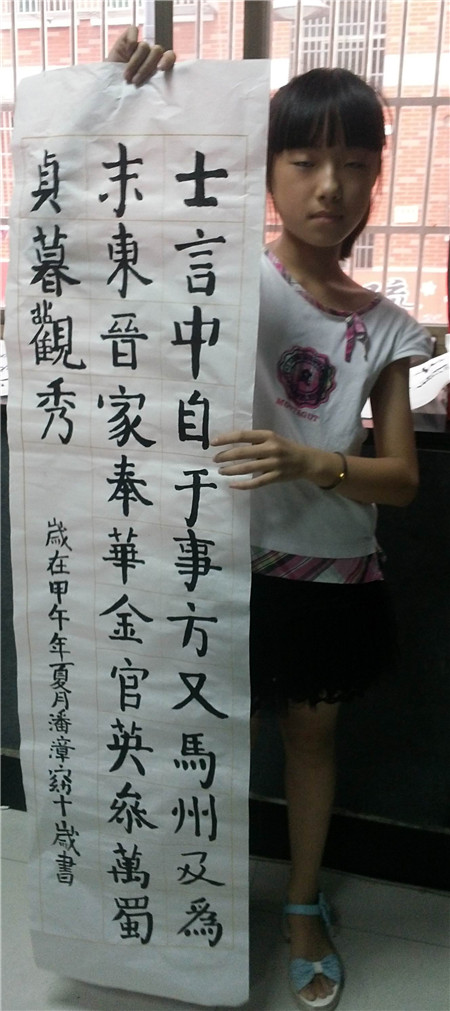 士言中自于事方又馬州及為
未東晉家奉華金官英叅萬蜀
貞暮觀秀
歲在甲午年夏月潘漳窈十歲書